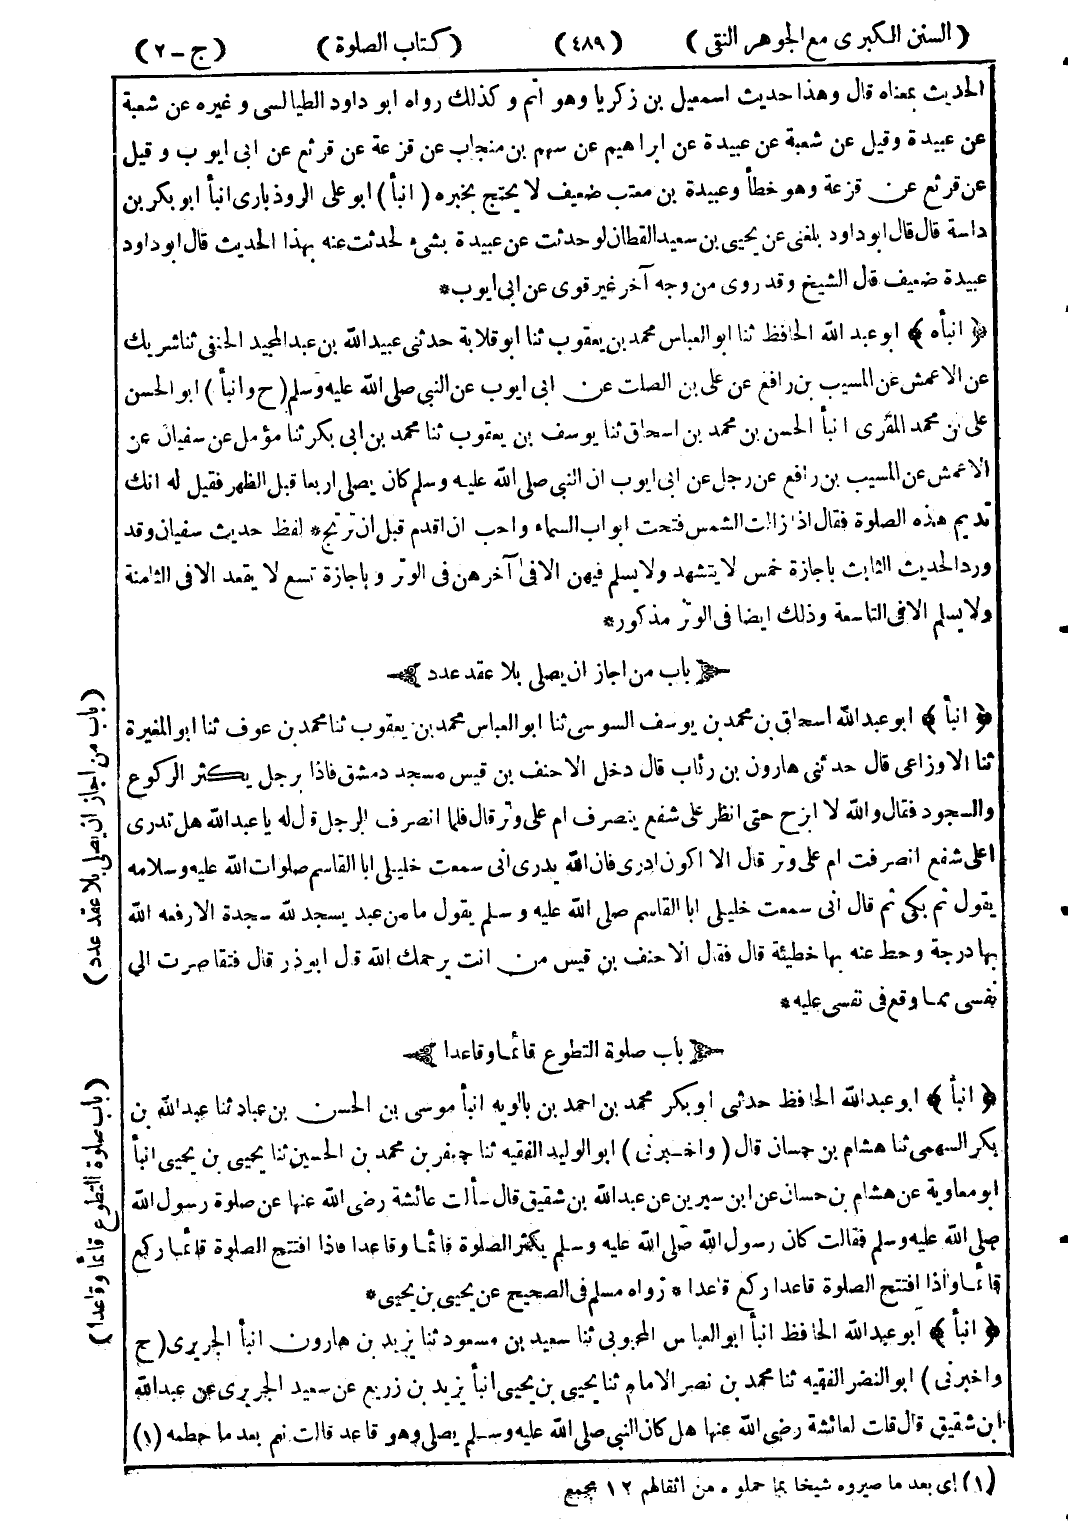 (السنن الكبرى مع الجوهر النقى) (٤٨٩) (كتاب الصلوة) (ج-٢)
الحديث بمعناه قال وهذا حديث اسمعيل بن زكريا وهو اتم و كذلك رواه ابو داود الطيالسى و غيره عن شعبة
عن عبيدة وقيل عن شعبة عن عبيدة عن ابراهيم عن سهم بن منجاب عن قزعة عن قرثع عن ابى ايوب و قيل
عن قرثع عن قزعة وهو خطأ وعبيدة بن معتب ضعيف لا يحتج بخبره (انبأ) ابو على الروذبارى انبأ ابو بكر بن
داسة قال قال ابو داود بلغنى عن يحيى بن سعيد القطان لو حدثت عن عبيدة بشىء لحدثت عنه بهذا الحديث قال ابو داود
عبيدة ضعيف قال الشيخ وقد روى من وجه آخر غير قوى عن ابى ايوب*
﴿ انبأه ﴾ ابو عبد الله الحافظ ثنا ابو العباس محمد بن يعقوب ثنا ابو قلابة حدثنى عبيد الله بن عبد المجيد الحنفى ثنا شريك
عن الاعمش عن المسيب بن رافع عن على بن الصلت عن ابى ايوب عن النبى صلى الله عليه وسلم (ح وانبأ) ابو الحسن
على بن محمد المقرى انبأ الحسن بن محمد بن اسحاق ثنا يوسف بن يعقوب ثنا محمد بن ابى بكر ثنا مؤمل عن سفيان عن
الاعمش عن المسيب بن رافع عن رجل عن ابى ايوب ان النبى صلى الله عليه وسلم كان يصلى اربعا قبل الظهر فقيل له انك
تديم هذه الصلوة فقال اذا زالت الشمس فتحت ابواب السماء واحب ان اقدم قبل ان ترتج* لفظ حديث سفيان وقد
ورد الحديث الثابت باجازة خمس لا يتشهد ولا يسلم فيهن الا فى آخرهن فى الوتر و باجازة تسع لا يقعد الا فى الثامنة
ولا يسلم الا فى التاسعة وذلك ايضا فى الوتر مذكور*
باب من اجاز ان يصلى بلا عقد عدد
﴿ انبأ ﴾ ابو عبد الله اسحاق بن محمد بن يوسف السوسى ثنا ابو العباس محمد بن يعقوب ثنا محمد بن عوف ثنا ابو المغيرة
ثنا الاوزاعى قال حدثنى هارون بن رئاب قال دخل الاحنف بن قيس مسجد دمشق فاذا برجل يكثر الركوع
والسجود فقال والله لا ابرح حتى انظر على شفع ينصرف ام على وتر قال فلما انصرف الرجل قال له يا عبد الله هل تدرى
اعلى شفع انصرفت ام على وتر قال الا اكون ادرى فان الله يدرى انى سمعت خليلى ابا القاسم صلوات الله عليه وسلامه
يقول ثم بكى ثم قال انى سمعت خليلى ابا القاسم صلى الله عليه وسلم يقول ما من عبد يسجد لله سجدة الا رفعه الله
بها درجة وحط عنه بها خطيئة قال فقال الاحنف بن قيس من انت يرحمك الله قال ابو ذر قال فتقاصرت الى
نفسى مما وقع فى نفسى عليه*
باب صلوة التطوع قائما وقاعدا
﴿ انبأ ﴾ ابو عبد الله الحافظ حدثنى ابو بكر محمد بن احمد بن بالويه انبأ موسى بن الحسن بن عباد ثنا عبد الله بن
بكر السهمى ثنا هشام بن حسان قال (واخبرنى) ابو الوليد الفقيه ثنا جعفر بن محمد بن الحسين ثنا يحيى بن يحيى انبأ
ابو معاوية عن هشام بن حسان عن ابن سيرين عن عبد الله بن شقيق قال سألت عائشة رضى الله عنها عن صلوة رسول الله
صلى الله عليه وسلم فقالت كان رسول الله صلى الله عليه وسلم يكثر الصلوة قائما وقاعدا فاذا افتتح الصلوة قائما ركع
قائما واذا افتتح الصلوة قاعدا ركع قاعدا * رواه مسلم فى الصحيح عن يحيى بن يحيى*
﴿ انبأ ﴾ ابو عبد الله الحافظ انبأ ابو العباس المحبوبى ثنا سعيد بن مسعود ثنا يزيد بن هارون انبأ الجريرى (ح
واخبرنى) ابو النضر الفقيه ثنا محمد بن نصر الامام ثنا يحيى بن يحيى انبأ يزيد بن زريع عن سعيد الجريرى عن عبد الله
ابن شقيق قال قلت لعائشة رضى الله عنها هل كان النبى صلى الله عليه وسلم يصلى وهو قاعد قالت نعم بعد ما حطمه (١)
(١) اى بعد ما صيروه شيخا بما حملوه من اثقالهم ١٢ مجمع
(باب من اجاز ان يصلى بلا عقد عدد)
(باب صلوة التطوع قائما وقاعدا)